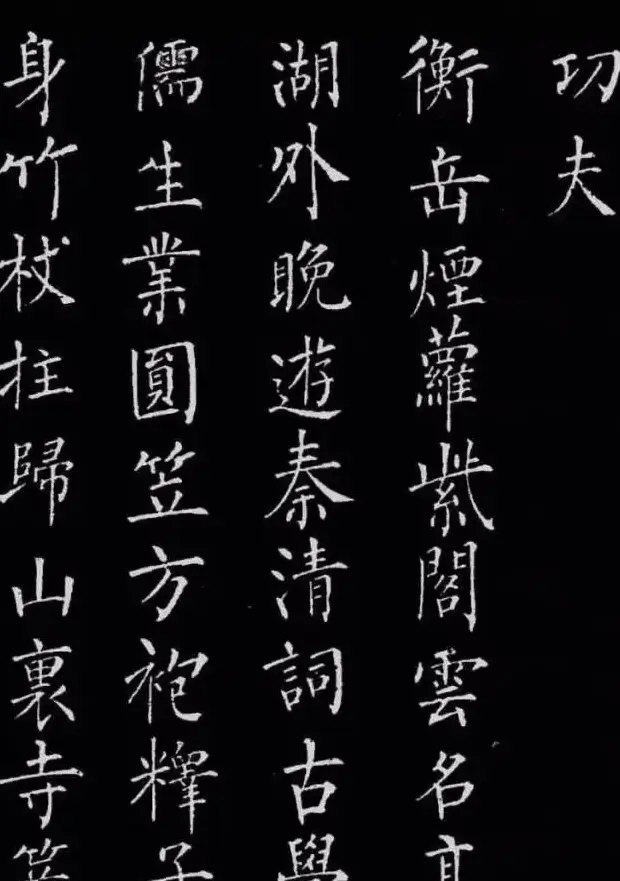 功夫
衡岳煙蘿紫閣雲名高
湖外晚遊秦清詞古學
儒生業圓笠方袍釋子
身竹杖拄歸山裏寺